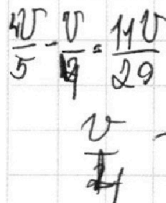 4v/5 - v/4 = 11v/20
v/4 -